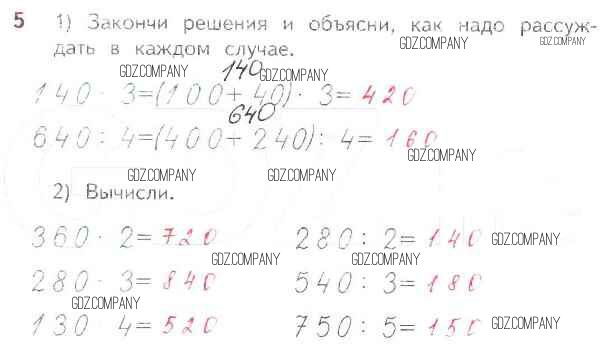 5 1) Закончи решения и объясни, как надо рассуж-
GDZ.COMPANY
дать в каждом случае.
GDZ.COMPANY 140 GDZ.COMPANY
140 · 3=(100+40) · 3= 420
640
640 : 4=(400+240) : 4= 160
GDZ.COMPANY
GDZ.COMPANY GDZ.COMPANY
2) Вычисли.
360 · 2= 720 280 : 2= 140 GDZ.COMPANY
GDZ.COMPANY GDZ.COMPANY
280 · 3= 840 540 : 3= 180
GDZ.COMPANY
130 · 4= 520 750 : 5= 150 GDZ.COMPANY
GDZ.COMPANY